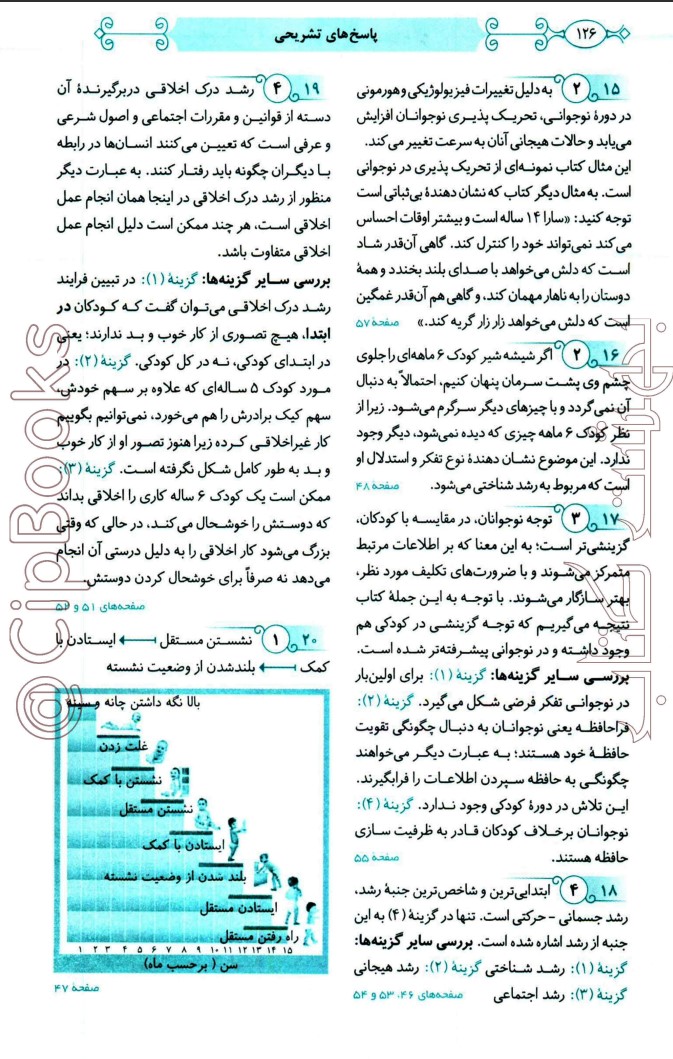 ۱۲۶
پاسخ‌های تشریحی
۱۵ ۲ به دلیل تغییرات فیزیولوژیکی و هورمونی
در دورهٔ نوجوانی، تحریک پذیری نوجوانان افزایش
می‌یابد و حالات هیجانی آنان به سرعت تغییر می کند.
این مثال کتاب نمونه‌ای از تحریک پذیری در نوجوانی
است. به مثال دیگر کتاب که نشان دهندهٔ بی‌ثباتی است
توجه کنید: «سارا ۱۴ ساله است و بیشتر اوقات احساس
می کند نمی‌تواند خود را کنترل کند. گاهی آن‌قدر شاد
است که دلش می‌خواهد با صدای بلند بخندد و همهٔ
دوستان را به ناهار مهمان کند، و گاهی هم آن‌قدر غمگین
است که دلش می‌خواهد زار زار گریه کند.» صفحهٔ ۵۷
۱۶ ۲ اگر شیشه شیر کودک ۶ ماهه‌ای را جلوی
چشم وی پشت سرمان پنهان کنیم، احتمالاً به دنبال
آن نمی گردد و با چیزهای دیگر سرگرم می‌شود. زیرا از
نظر کودک ۶ ماهه چیزی که دیده نمی‌شود، دیگر وجود
ندارد. این موضوع نشان دهندهٔ نوع تفکر و استدلال او
است که مربوط به رشد شناختی می‌شود. صفحهٔ ۴۸
۱۷ ۳ توجه نوجوانان، در مقایسه با کودکان،
گزینشی‌تر است؛ به این معنا که بر اطلاعات مرتبط
متمرکز می‌شوند و با ضرورت‌های تکلیف مورد نظر،
بهتر سازگار می‌شوند. با توجه به این جملهٔ کتاب
نتیجه می‌گیریم که توجه گزینشی در کودکی هم
وجود داشته و در نوجوانی پیشرفته‌تر شده است.
بررسی سایر گزینه‌ها: گزینهٔ (۱): برای اولین‌بار
در نوجوانی تفکر فرضی شکل می‌گیرد. گزینهٔ (۲):
فراحافظه یعنی نوجوانان به دنبال چگونگی تقویت
حافظهٔ خود هستند؛ به عبارت دیگر می‌خواهند
چگونگی به حافظه سپردن اطلاعات را فرابگیرند.
این تلاش در دورهٔ کودکی وجود ندارد. گزینهٔ (۴):
نوجوانان برخلاف کودکان قادر به ظرفیت سازی
حافظه هستند. صفحهٔ ۵۵
۱۸ ۴ ابتدایی‌ترین و شاخص‌ترین جنبهٔ رشد،
رشد جسمانی - حرکتی است. تنها در گزینهٔ (۴) به این
جنبه از رشد اشاره شده است. بررسی سایر گزینه‌ها:
گزینهٔ (۱): رشد شناختی گزینهٔ (۲): رشد هیجانی
گزینهٔ (۳): رشد اجتماعی صفحه‌های ۴۶، ۵۳ و ۵۴
۱۹ ۴ رشد درک اخلاقی دربرگیرندهٔ آن
دسته از قوانین و مقررات اجتماعی و اصول شرعی
و عرفی است که تعیین می کنند انسان‌ها در رابطه
با دیگران چگونه باید رفتار کنند. به عبارت دیگر
منظور از رشد درک اخلاقی در اینجا همان انجام عمل
اخلاقی است، هر چند ممکن است دلیل انجام عمل
اخلاقی متفاوت باشد.
بررسی سایر گزینه‌ها: گزینهٔ (۱): در تبیین فرایند
رشد درک اخلاقی می‌توان گفت که کودکان در
ابتدا، هیچ تصوری از کار خوب و بد ندارند؛ یعنی
در ابتدای کودکی، نه در کل کودکی. گزینهٔ (۲): در
مورد کودک ۵ ساله‌ای که علاوه بر سهم خودش،
سهم کیک برادرش را هم می‌خورد، نمی‌توانیم بگوییم
کار غیراخلاقی کرده زیرا هنوز تصور او از کار خوب
و بد به طور کامل شکل نگرفته است. گزینهٔ (۳):
ممکن است یک کودک ۶ ساله کاری را اخلاقی بداند
که دوستش را خوشحال می‌کند، در حالی که وقتی
بزرگ می‌شود کار اخلاقی را به دلیل درستی آن انجام
می‌دهد نه صرفاً برای خوشحال کردن دوستش.
صفحه‌های ۵۱ و ۵۲
۲۰ ۱ نشستن مستقل ⟵ ایستادن با
کمک ⟵ بلندشدن از وضعیت نشسته
بالا نگه داشتن چانه و سینه
غلت زدن
نشستن با کمک
نشستن مستقل
ایستادن با کمک
بلند شدن از وضعیت نشسته
ایستادن مستقل
راه رفتن مستقل
۱ ۲ ۳ ۴ ۵ ۶ ۷ ۸ ۹ ۱۰ ۱۱ ۱۲ ۱۳ ۱۴ ۱۵
سن ( برحسب ماه)
صفحهٔ ۴۷
@CipBooks